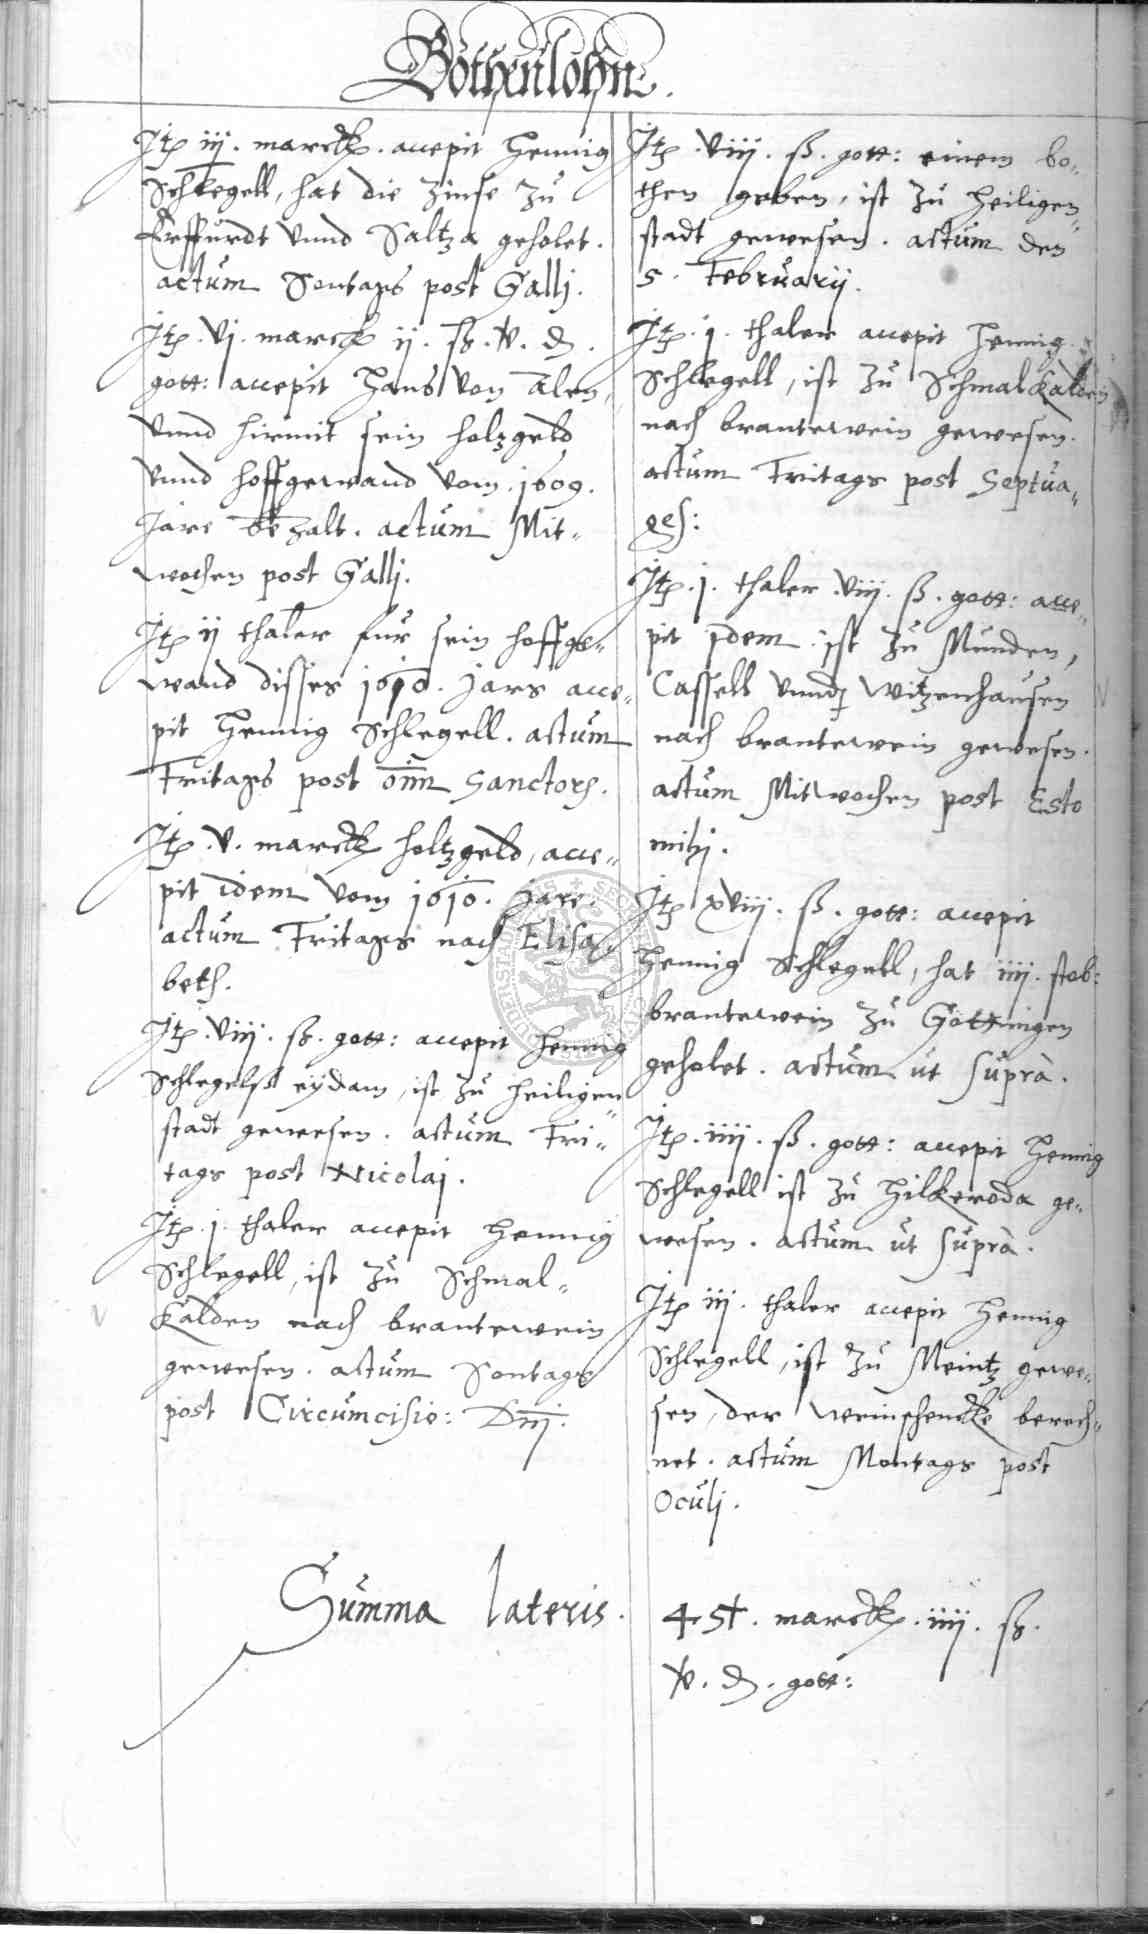 Bothenlohn.
Itp iij. marck. accepit Hennig
Schlegell, hat die Zinse zu
Erffurdt vnnd Saltza geholet.
actum Sontags post Galli.
Itp. vj. marck ij. ß. v. d.
gott: accepit Hans von Alen,
vnnd hirmit sein holzgeld
vnnd hoffgewand vom. 1609.
Jare bezalt. actum Mit„
wochen post Galli.
Itp ij thaler fur sein hoffge„
wand disses 1610. Jars acce„
pit Hennig Schlegell. actum
Fritags post oīm Sanctorū.
Itp. v. marck holtzgeld, acce„
pit idem vom 1610. Jare.
actum Fritags nach Elisa„
beth.
Itp. viij. ß. gott: accepit Hennig
Schlegelß eydam, ist zu Heiligen„
stadt gewesen. actum Fri„
tags post Nicolai.
Itp. j. thaler accepit Hennig
Schlegell, ist zu Schmal„
kalden nach brantewein
gewesen. actum Sontags
post Circumcisio: Dnj.
Itp. viij. ß. gott: einem bo„
then geben, ist zu Heiligen„
stadt gewesen. actum den
5. Februarij.
Itp. j. thaler accepit Hennig
Schlegell, ist zu Schmalkalden
nach brantewein gewesen.
actum Fritags post Septua„
ges:
Itp. j. thaler. viij. ß. gott: acce„
pit idem ist zu Munden,
Cassell vnnd Witzenhausen
nach brantewein gewesen.
actum Mitwochen post Esto
mihj.
Itp xviij. ß. gott: accepit
Hennig Schlegell, hat iiij. stob:
brantewein zu Gottingen
geholet. actum ut supra.
Itp. iiij. ß. gott: accepit Hennig
Schlegell ist zu Hilkeroda ge„
wesen. actum ut supra.
Itp iij. thaler accepit Hennig
Schlegell, ist zu Meintz gewe„
sen, der weinschencke berech„
net. actum Montags post
Oculj.
Summa lateris.
45½. marck. iiij. ß.
v. d. gott: